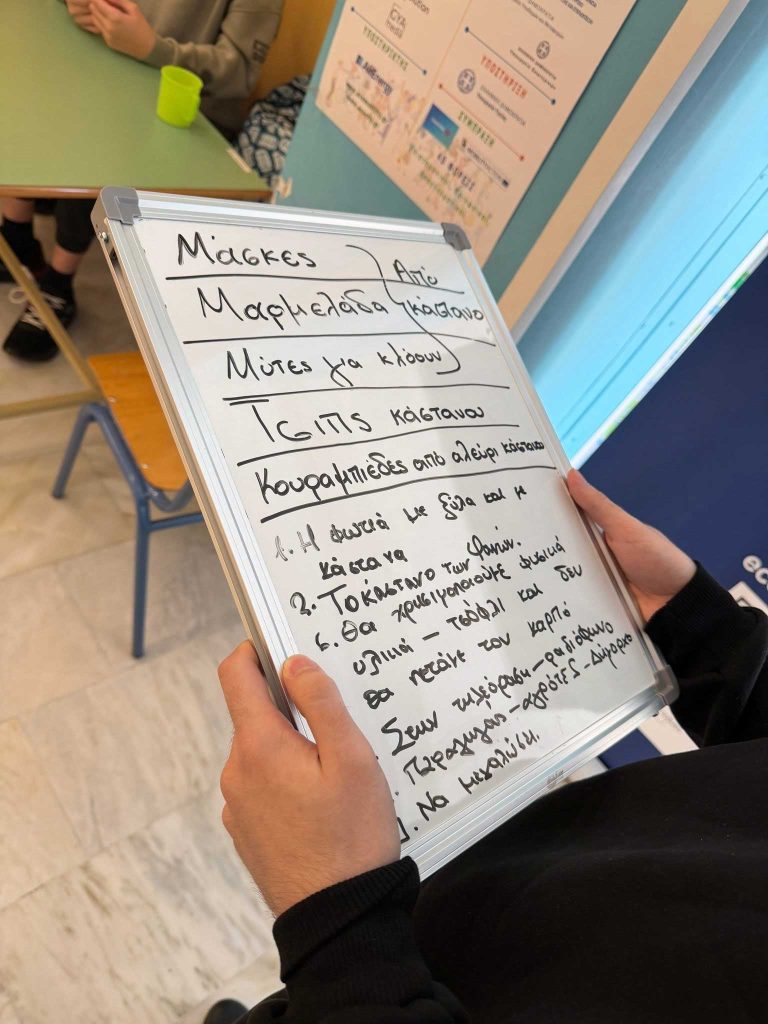 ΥΠΟΣΤΗΡΙΚΤΗΣ
ΥΠΟΣΤΗΡΙΞΗ
ΣΥΜΠΡΑΞΗ
ΚΕ ΦΟΡΕΙΣ
Μάσκες
Μαρμελάδα
Μύτες για κλόουν
Από
κάστανο
Τσιπς κάστανου
Κουραμπιέδες από αλεύρι κάστανου
1. Η φωτιά με ξύλα και με
κάστανα
2. Το κάστανο των Φανών.
Θα χρησιμοποιούμε φυσικά
υλικά – τσόφλι και δεν
θα πετάμε τον καρπό
Στην τηλεόραση – ραδιόφωνο
Παραγωγός – αγρότες –
Να μεγαλώσει.
eco